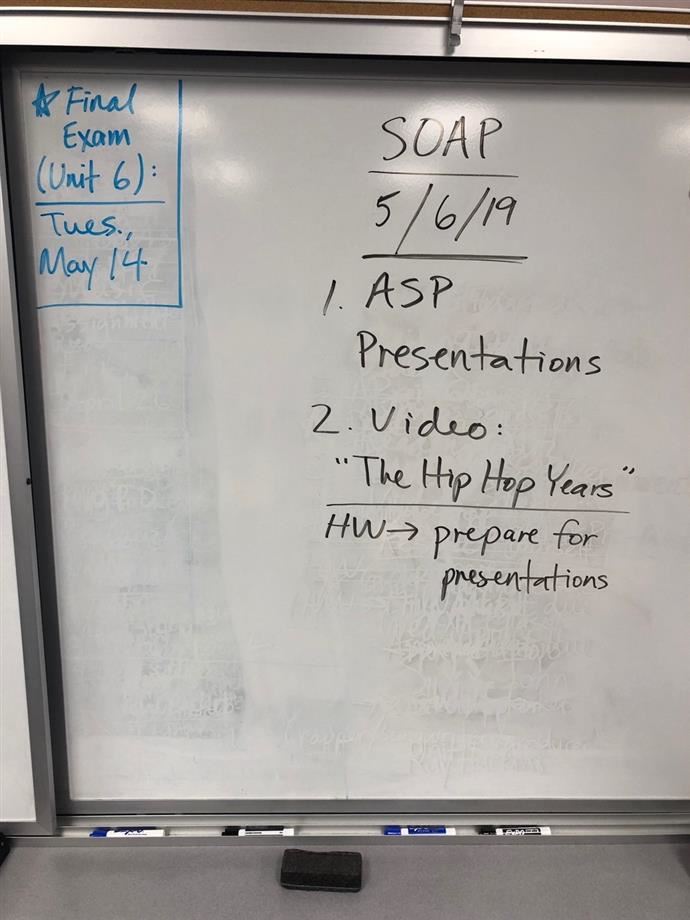 ☆ Final
Exam
(Unit 6):
Tues.,
May 14
SOAP
5/6/19
1. ASP
Presentations
2. Video:
"The Hip Hop Years"
HW→ prepare for
presentations